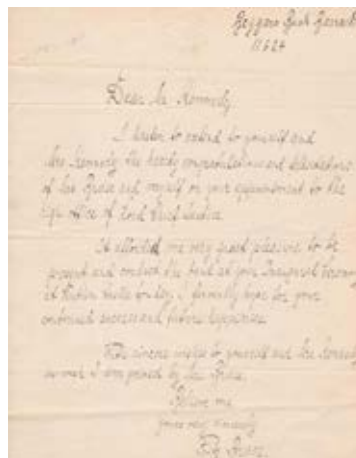 Beggars Bush Barrack
11 6 24
Dear Mr Kennedy
I hasten to extend to yourself and
Mrs Kennedy the hearty congratulations and
of Mrs Brase and myself on your appointment to the
high office of Lord Chief Justice.
It afforded me very great pleasure to be
present and conduct the band at your Inaugural Ceremony
at Dublin Castle today. I formally hope for your
continued success and future happiness.
sincere wishes to yourself and Mrs Kennedy
I am joined by Mrs Brase.
Believe me
yours very sincerely
Fritz Brase.